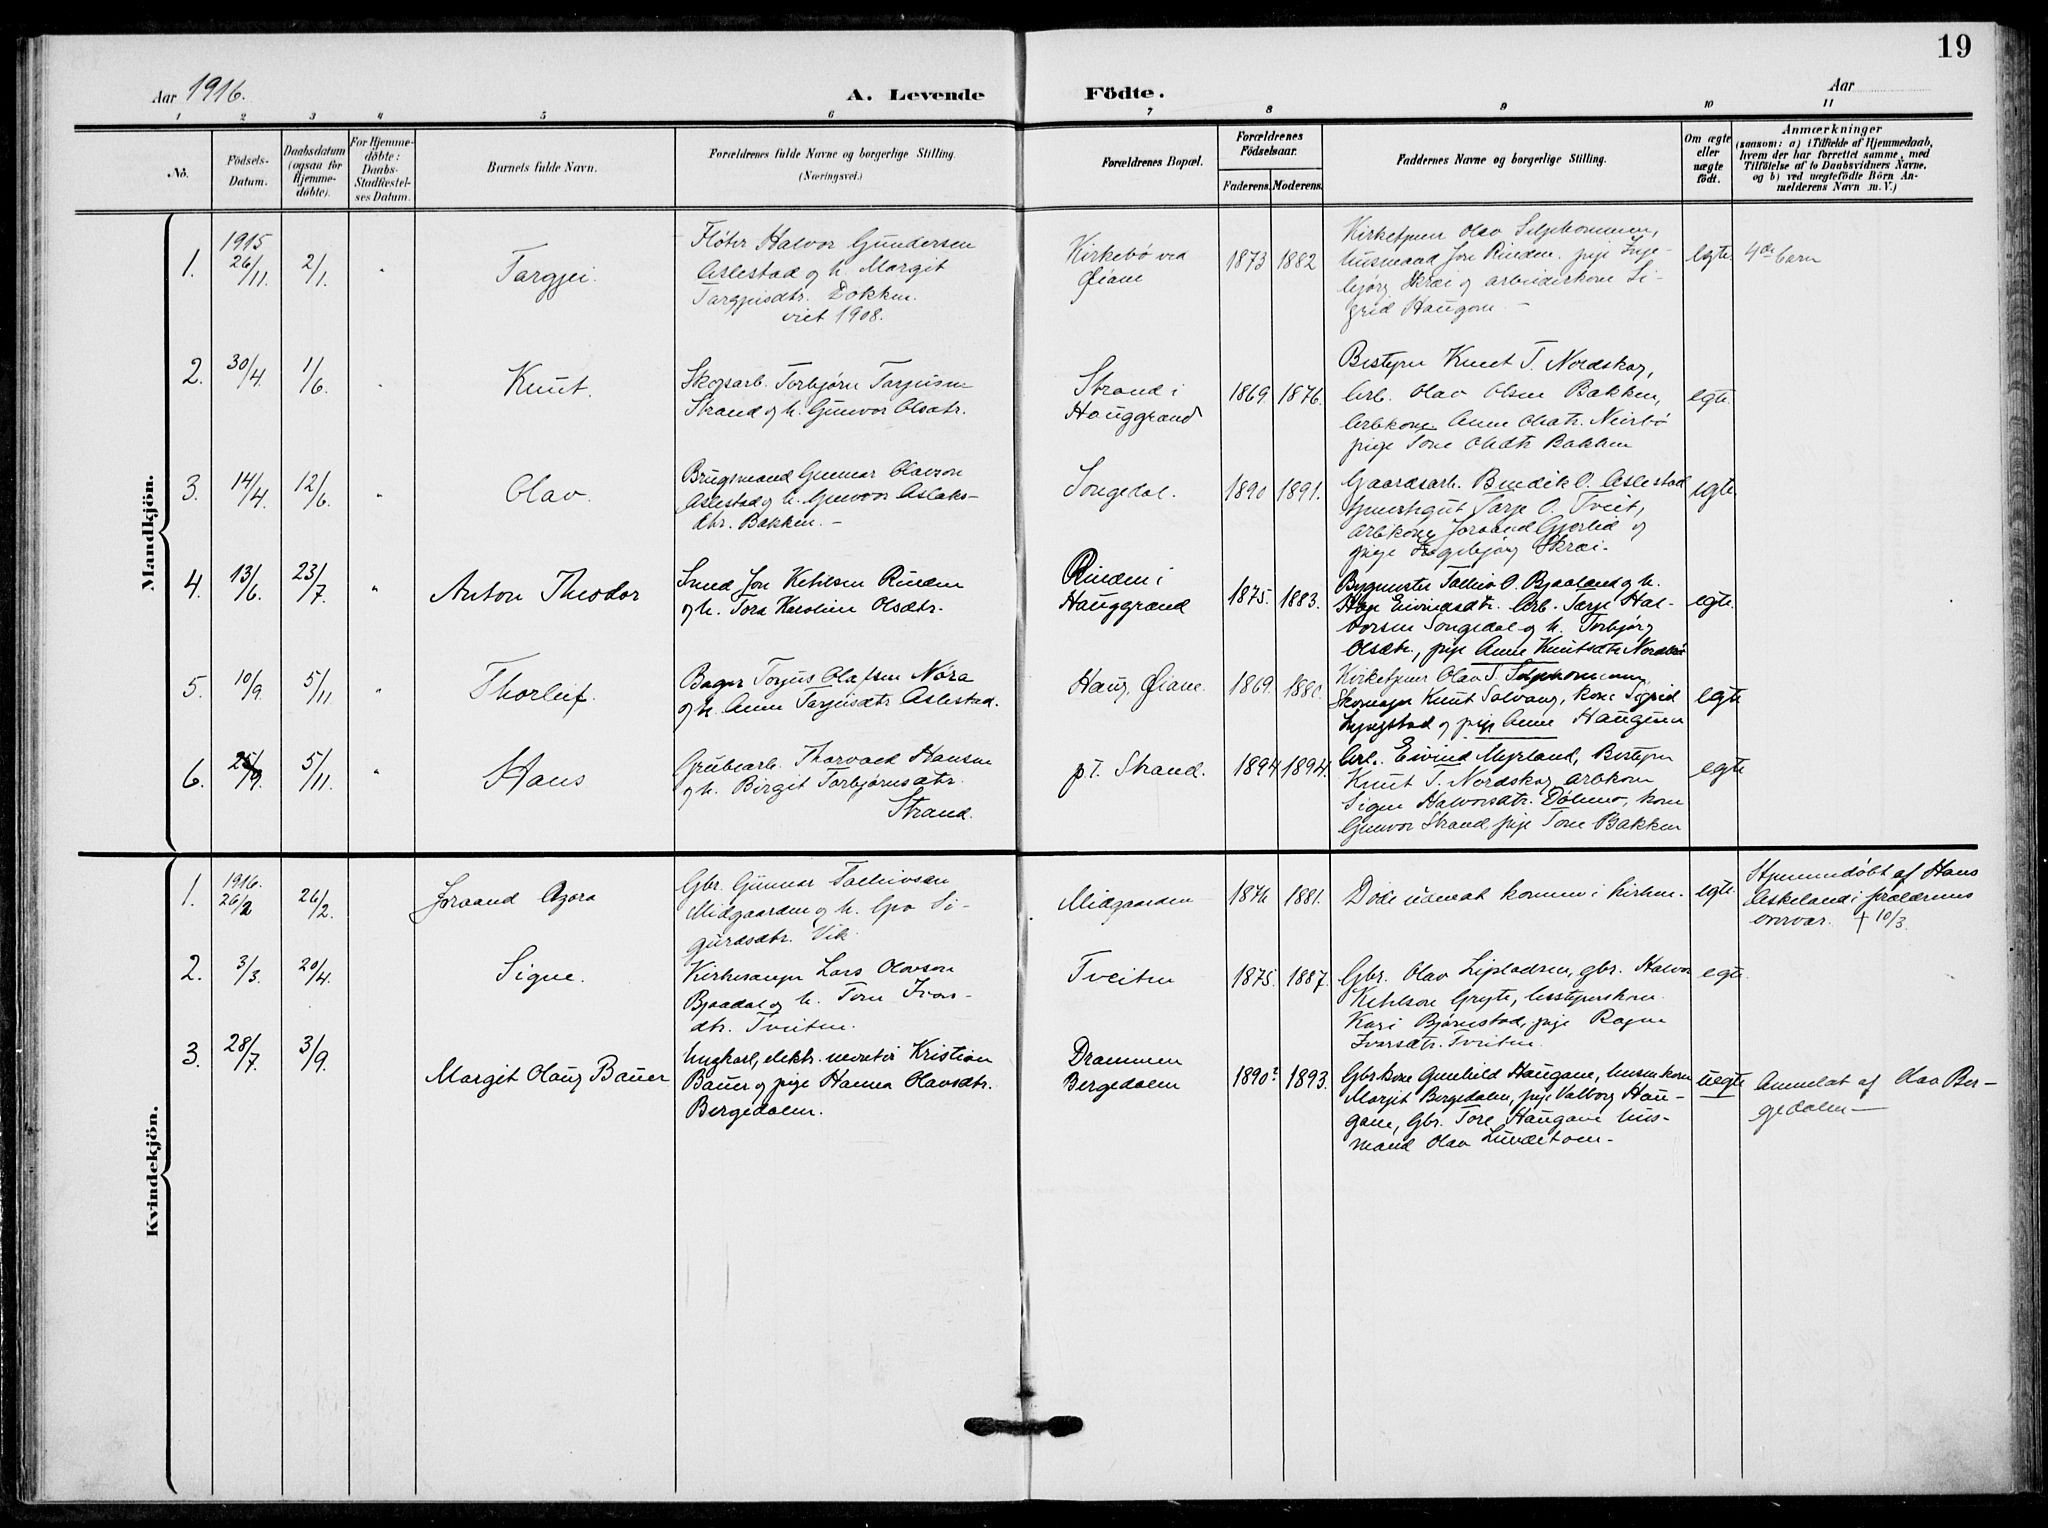 19
Aar 1916.
A. Levende Födte.
Aar
1 2 3 4 5 6 7 8 9 10 11
No.
Födsels-Datum.
Daabsdatum (ogsaa for Hjemmedøbte).
For Hjemmedøbte: Daabs-Stadfæstelses Datum.
Barnets fulde Navn.
Forældrenes fulde Navne og borgerlige Stilling.
(Næringsvei.)
Forældrenes Bopæl.
Forældrenes Födselsaar.
Faderens. Moderens.
Faddernes Navne og borgerlige Stilling.
Om ægte eller uægte födt.
Anmærkninger
(saasom: a) i Tilfælde af Hjemmedaab,
hvem der har forrettet samme, med
Tilföielse af to Daabsvidners Navne.
og b) ved uægtefödte Börn An-
melderens Navn m. V.)
Mandkjön.
1. 1915 26/11. 2/1. " Targjei.
Fløter Halvor Gundersen
Aslestad og h. Margit
Targjeisdtr. Dokken.
viet 1908.
Kirkebö ved
Øiane
1873 1882
Kirketjener Olav
husmand Jon Rinden. pige Inge-
bjørg Skrei og arbeiderskone Si-
grid Haugom -
egte. 4de barn
2. 30/4. 1/6. " Knut.
Skogsarb. Torbjörn Tarjeisen
Strand og h. Gunvor Olsdtr.
Strand i
Hauggrand
1869. 1876.
Bestyrer Knut T. Nordskog,
Arb. Olav Olsen Bakken,
Arbkone Anne Olsdtr. Neirbö
pige Tone Olsdtr Bakken
egte.
3. 14/4. 12/6. " Olav.
Brugsmand Gunnar Olavson
Aslestad og h. Gunvor Aslaks-
dtr. Bakken. -
Songedal.
1890 1891.
Gaardsarb. Bendik O. Aslestad
Tarje O. Tveit,
arbkone Joraand Gjerlid og
pige Ingebjörg Skrei.
egte.
4. 13/6. 23/7. " Anton Theodor
Smed Jon Ketilsen Rinden
og h. Tora Karoline Olsdtr.
Rinden i
Hauggrand
1875. 1883.
Bygmester Talleiv O. Bjaaland og h.
Eivindsdtr. Arb. Tarje Hal-
vorsen Songedal og h. Torbjørg
Olsdtr., pige Anne Knutsdtr Nordskog
egte.
5. 10/9. 5/11 " Thorleif.
Bager Torjus Olafsen Nøra
og h. Anne Tarjeisdtr Aslestad.
Haug, Øiane.
1869. 1880.
Kirketjener Olav T.
Skomager Knut Solvang, kone Sigrid
Lyngstad og pige Anne Haugene
egte
6. 25/9. 5/11. " Hans
Grubearb. Thorvald Hansen
og h. Birgit Torbjørnsdtr.
Strand.
p.t. Strand.
1894 1894.
Arb. Eivind Myrland, Bestyrer
Knut T. Nordskog, arbkone
Signe Halvorsdtr. Dölemo, kone
Gunvor Strand, pige Tone Bakken
egte
Kvindekjön.
1. 1916. 26/2 26/2. Joraand Agora
Gbr. Gunnar Talleivsen
Midgaarden og h. Apo Si-
gurdsdtr. Vik.
Midgaarden
1876 1881.
Døde uden at komme i kirken.
egte.
Hjemmedøbt af Hans
Askeland i forældrenes
overvær. + 10/3.
2. 3/3. 20/4. Signe.
Kirkesanger Lars Olavson
Bjaadal og h. Tone Ivars-
dtr. Tveiten.
Tveiten
1875. 1887.
Gbr. Olav Liplodsen, gbr. Halvor
Ketilson Gryte, bestyrerskone
Kari Björnstad, pige Ragne
Ivarsdtr. Tveiten.
egte.
3. 28/7. 3/9. Margit Olaug Bauer
Ungkarl, elektr. montør Kristian
Bauer og pige Hanna Olavsdtr.
Bergedalen.
Drammen
Bergedalen
1890? 1893.
Gbrkone Gunhild Haugane, husm.kone
Margit Bergedalen, pige Valborg Hau-
gane, Gbr. Tore Haugane hus-
mand Olav Lundetoen.
uegte
Anmeldt af Olav Ber-
gedalen -